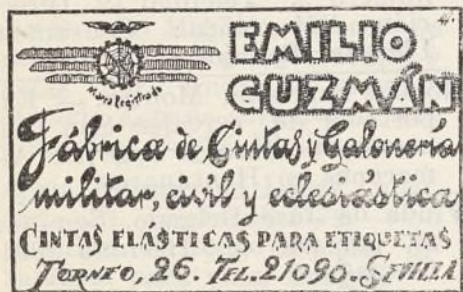 EMILIO
GUZMÁN
Marca Registrada
Fábrica de Cintas y Galonería
militar, civil y eclesiástica
CINTAS ELÁSTICAS PARA ETIQUETAS
TORNEO, 26. TEL. 21090. SEVILLA